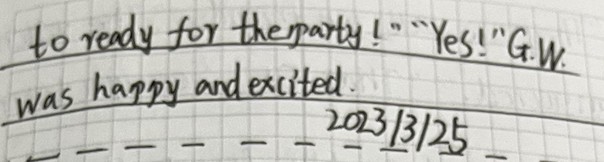 to ready for the party!" "Yes!" G.W.
was happy and excited.
2023/3/25